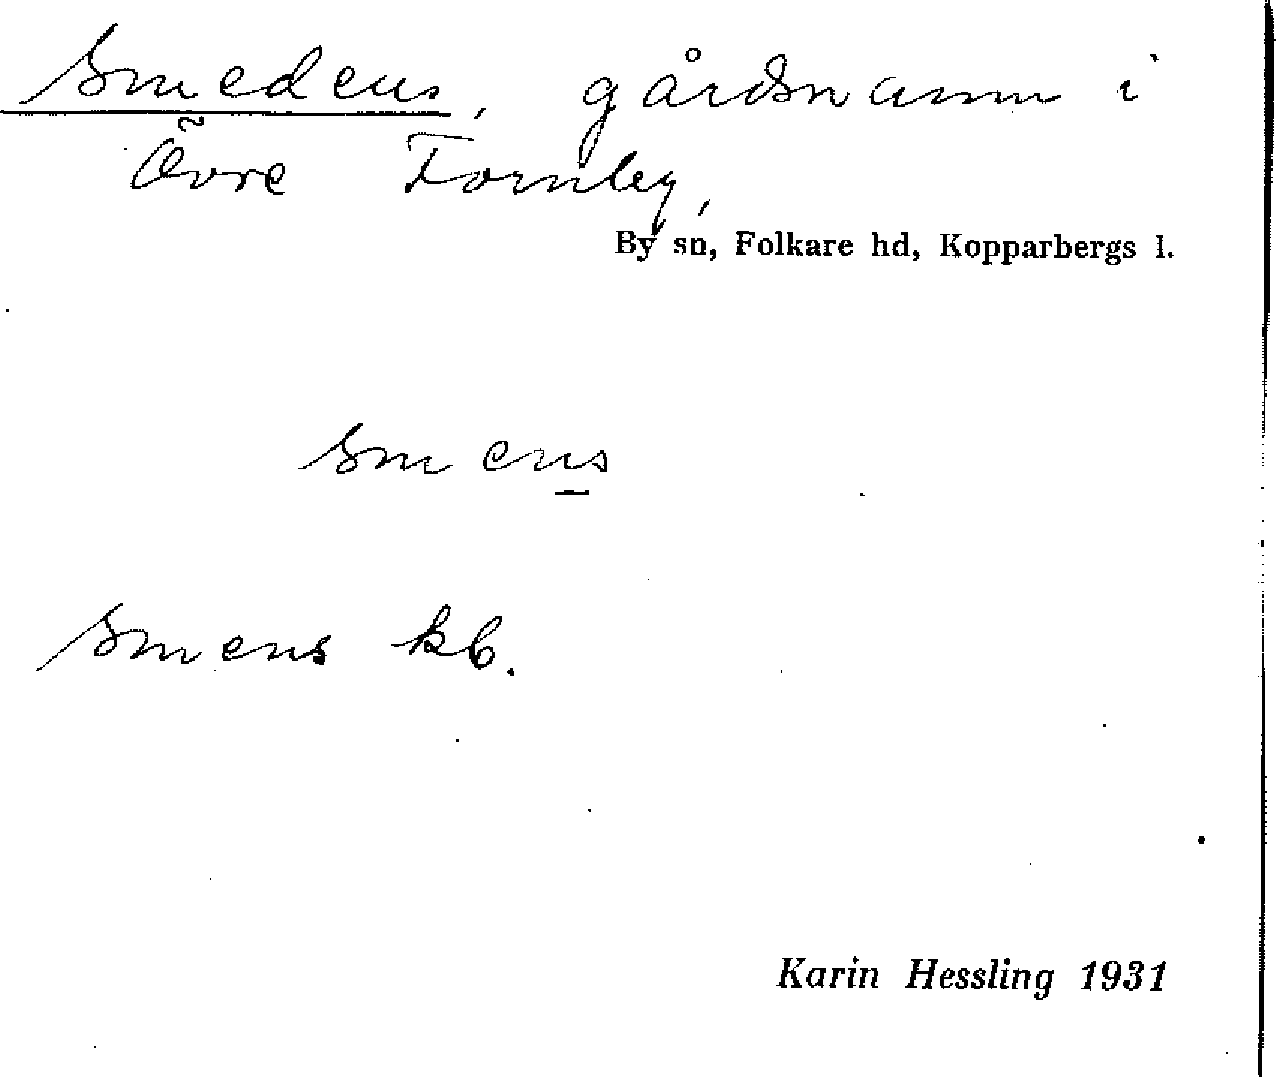 Smedens, gårdsnamn i
Övre Fornby,
By sn, Folkare hd, Kopparbergs l.
smens
Smens kb.
Karin Hessling 1931